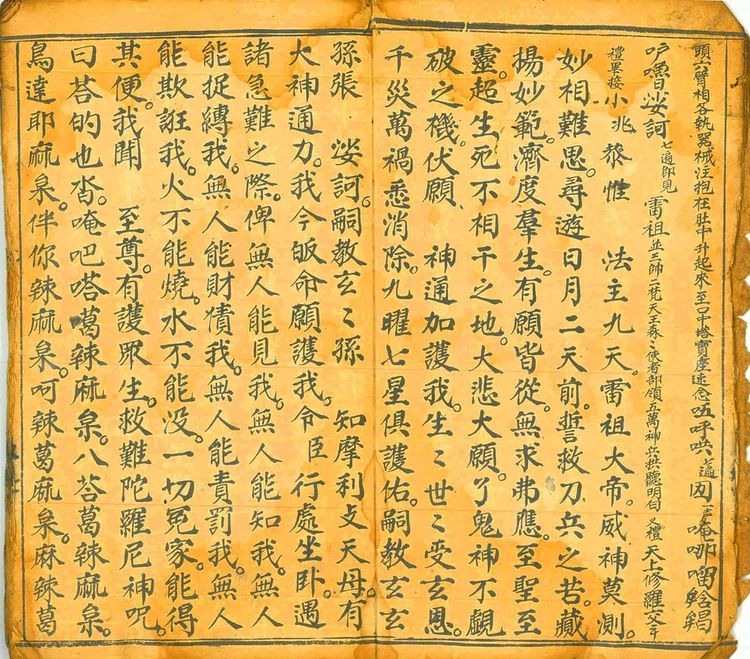 頭六臂相各執器械注抱在肚中升起來至口中塔寶塵速念吽呼吽七遍囡二唵哪嚼𩐎羯
吖嚕娑訶七遍即見雷祖並三帥一梵天王森〻使者部領五萬神兵拱聽明白又禮天上修羅父
禮畢接小兆恭惟 法主九天雷祖大帝。威神莫測。
妙相難思。尋遊日月二天前。誓救刀兵之苦。藏
揚妙範。濟度羣生。有願皆從。無求弗應。至聖至
靈。超生死不相干之地。大悲大願。了鬼神不覷
破之機。伏願 神通加護我。生〻世〻受玄恩。
千災萬禍悉消除。九曜七星俱護佑。嗣教玄玄
孫張 娑訶。嗣教玄〻孫 知摩利支天母。有
大神通力。我今皈命願護我。令臣行處坐臥。遇
諸急難之際。俾無人能見我。無人能知我。無人
能捉縛我。無人能財債我。無人能責罰我。無人
能欺誑我。火不能燒。水不能沒。一切冤家。能得
其便。我聞 至尊。有護眾生。救難陀羅尼神呪。
曰荅的也沓。唵吧嗒葛辣麻泉。八荅葛辣麻泉。
烏達耶麻泉。伴你辣麻泉。呵辣葛麻泉。麻辣葛